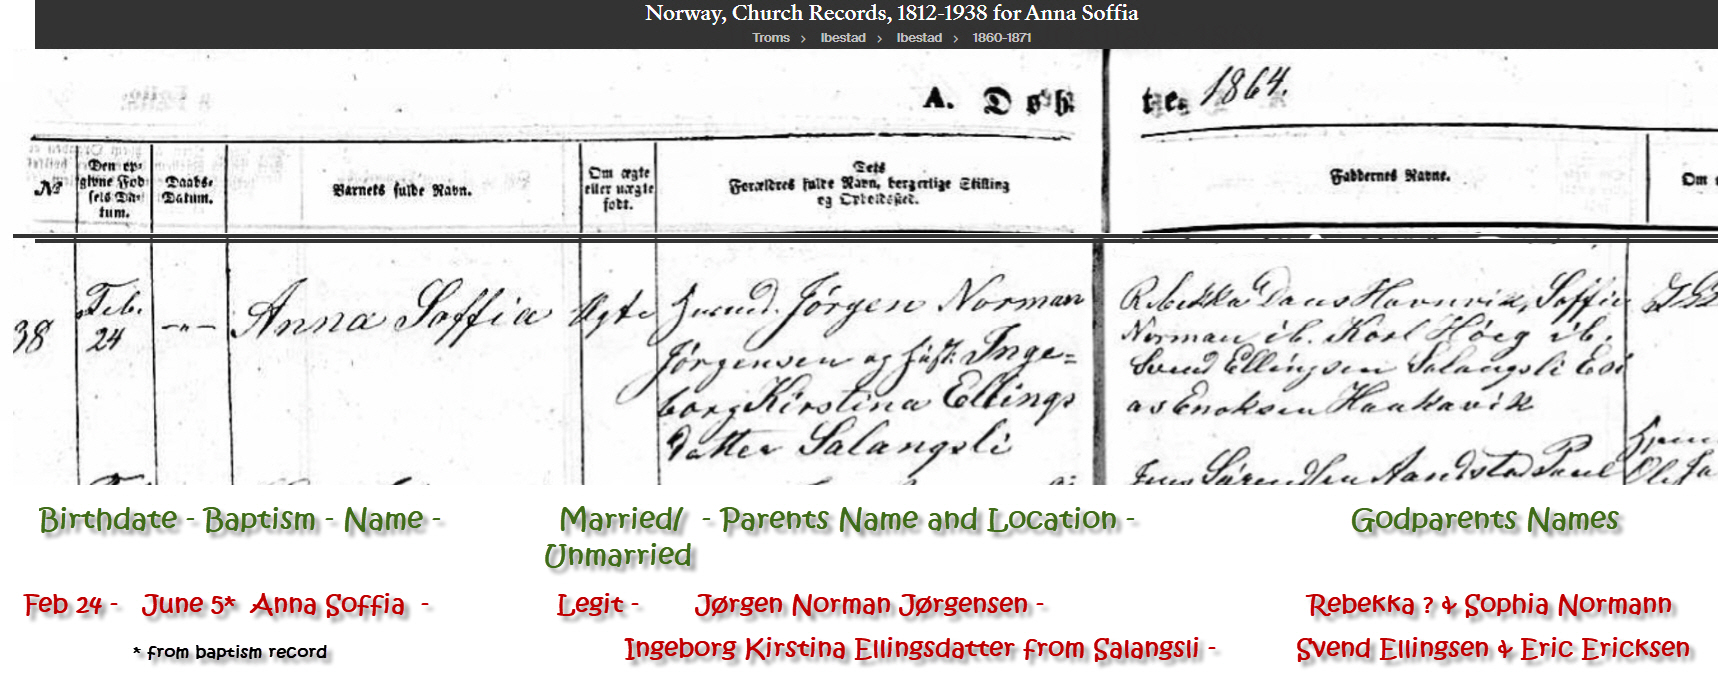 Norway, Church Records, 1812-1938 for Anna Soffia
Troms > Ibestad > Ibestad > 1860-1871
A. Døb te. 1864.
№
Den opgivne Fødsels Datum.
Daabs-Datum.
Barnets fulde Navn.
Om ægte eller uægte født.
Dets Forældres fulde Navn, borgerlige Stilling og Opholdssted.
Faddernes Navne.
Om
38
Feb. 24
—"—
Anna Soffia
Ægte
Jørgen Norman
Jørgensen og Inge=
borg Kirstina Ellings
datter Salangsli
Rebekka Daus Havnvik, Soffie
Norman ib. Karl Høeg ib.
Svend Ellingsen Salangsli Esi
as Enoksen Haukavik
Birthdate - Baptism - Name -
Married/ - Parents Name and Location -
Unmarried
Godparents Names
Feb 24 - June 5* Anna Soffia -
Legit - Jørgen Norman Jørgensen -
Rebekka ? & Sophia Normann
* from baptism record
Ingeborg Kirstina Ellingsdatter from Salangsli -
Svend Ellingsen & Eric Ericksen